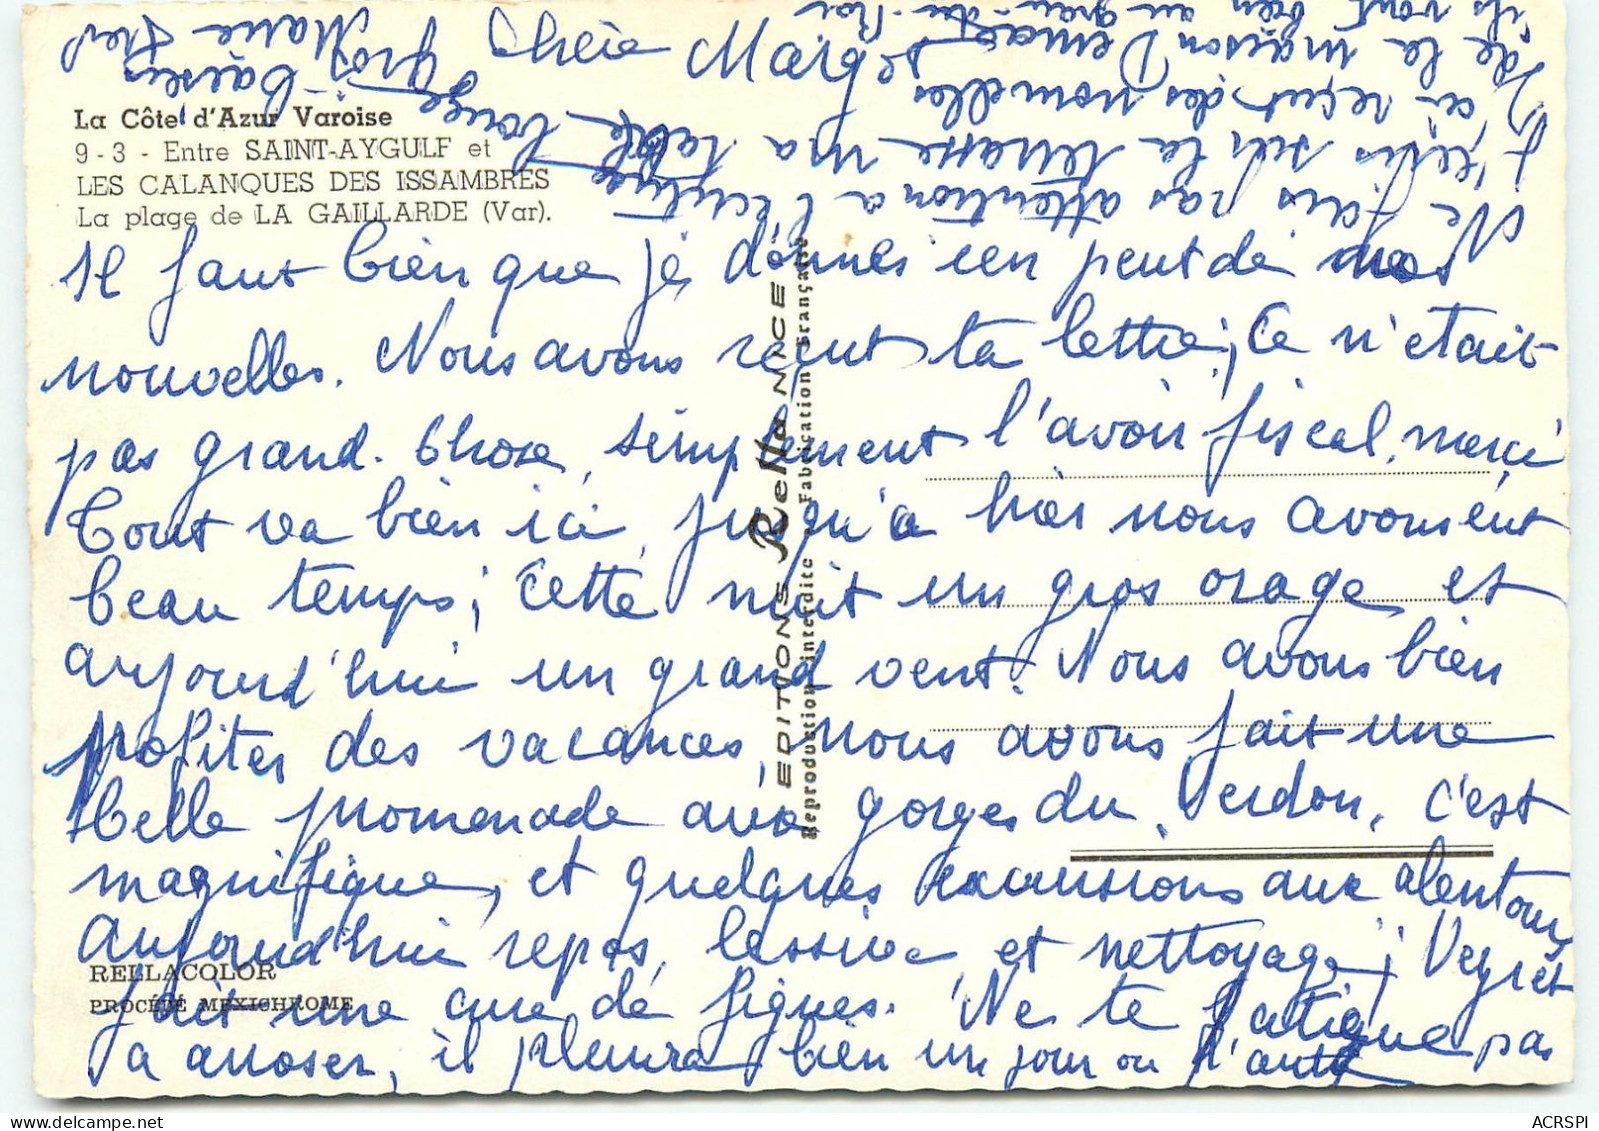 Chère Margot
La Côte d'Azur Varoise
9 - 3 - Entre SAINT-AYGULF et
LES CALANQUES DES ISSAMBRES
La plage de LA GAILLARDE (Var).
Il faut bien que je donnes un peut de nos
nouvelles. Nous avons reçut ta lettre, Ce n'etait
pas grand. Chose, simplement l'avoir fiscal, merci
Tout va bien ici, jusqu'a hier nous avons ent
beau temps; Cette nuit un gros orage et
aujourd'hui un grand vent. Nous avons bien
profiter des vacances, nous avons fait une
belle promenade aux gorges du Verdon, c'est
magnifique, et quelques excursions aux alentours
Aujourd'hui repos, lessive et nettoyage; Veyret
fait une cure de figues. Ne te fatigue pas
a arroser, il pleuvra bien un jour ou l'autre
Ne fais pas attention a l'écriture
j'ecris sur la terrasse ma table bouge
J'ai reçut des nouvelles
de la maison
ils vont bien au grau-du-Roi
gros baisers
Marie
EDITIONS Rella NICE
Reproduction interdite - Fabrication Française
RELLACOLOR
PROCÉDÉ MEXICHROME
ACRSPI